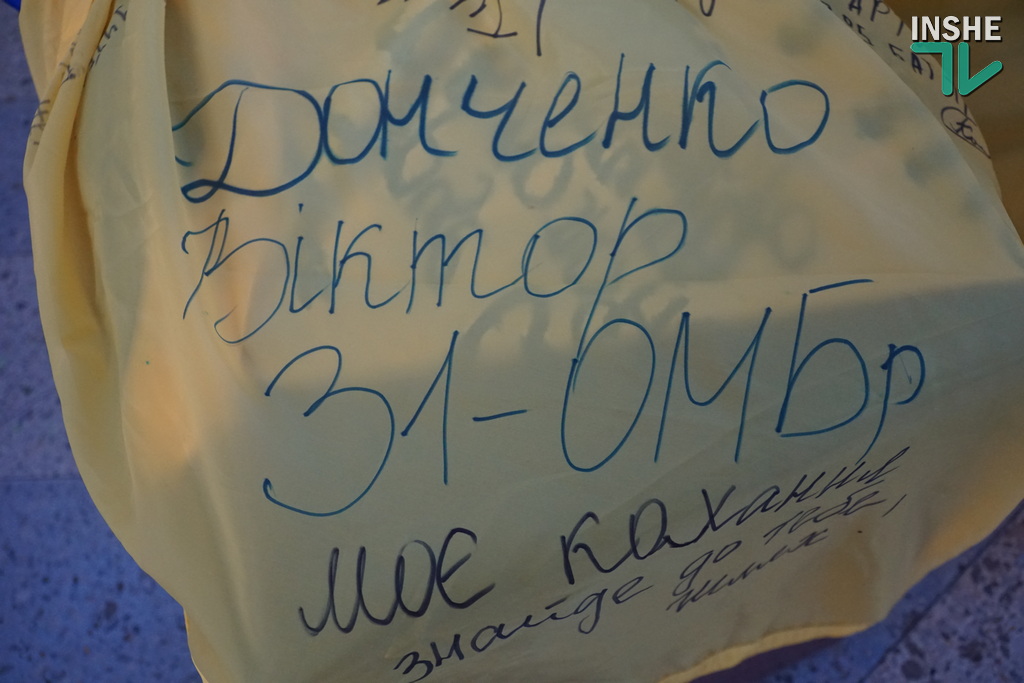 INSHE
TV
Донченко
Віктор
31-ОМБр
МОЄ кохання
знайде до тебе,
шлях.